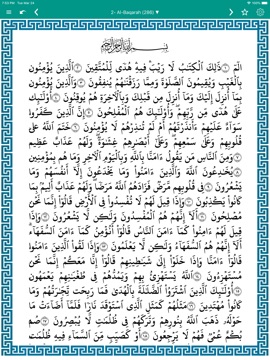 2- Al-Baqarah (286)
بِسْمِ ٱللَّهِ ٱلرَّحْمَٰنِ ٱلرَّحِيمِ
الٓمٓ ١ ذَٰلِكَ ٱلْكِتَٰبُ لَا رَيْبَ ۛ فِيهِ ۛ هُدًى لِّلْمُتَّقِينَ ٢ ٱلَّذِينَ يُؤْمِنُونَ
بِٱلْغَيْبِ وَيُقِيمُونَ ٱلصَّلَوٰةَ وَمِمَّا رَزَقْنَٰهُمْ يُنفِقُونَ ٣ وَٱلَّذِينَ يُؤْمِنُونَ
بِمَآ أُنزِلَ إِلَيْكَ وَمَآ أُنزِلَ مِن قَبْلِكَ وَبِٱلْءَاخِرَةِ هُمْ يُوقِنُونَ ٤ أُو۟لَٰٓئِكَ
عَلَىٰ هُدًى مِّن رَّبِّهِمْ وَأُو۟لَٰٓئِكَ هُمُ ٱلْمُفْلِحُونَ ٥ إِنَّ ٱلَّذِينَ كَفَرُوا۟
سَوَآءٌ عَلَيْهِمْ ءَأَنذَرْتَهُمْ أَمْ لَمْ تُنذِرْهُمْ لَا يُؤْمِنُونَ ٦ خَتَمَ ٱللَّهُ عَلَىٰ
قُلُوبِهِمْ وَعَلَىٰ سَمْعِهِمْ وَعَلَىٰٓ أَبْصَٰرِهِمْ غِشَٰوَةٌ وَلَهُمْ عَذَابٌ عَظِيمٌ
٧ وَمِنَ ٱلنَّاسِ مَن يَقُولُ ءَامَنَّا بِٱللَّهِ وَبِٱلْيَوْمِ ٱلْءَاخِرِ وَمَا هُم بِمُؤْمِنِينَ
٨ يُخَٰدِعُونَ ٱللَّهَ وَٱلَّذِينَ ءَامَنُوا۟ وَمَا يَخْدَعُونَ إِلَّآ أَنفُسَهُمْ وَمَا
يَشْعُرُونَ ٩ فِى قُلُوبِهِم مَّرَضٌ فَزَادَهُمُ ٱللَّهُ مَرَضًا وَلَهُمْ عَذَابٌ أَلِيمٌۢ بِمَا
كَانُوا۟ يَكْذِبُونَ ١٠ وَإِذَا قِيلَ لَهُمْ لَا تُفْسِدُوا۟ فِى ٱلْأَرْضِ قَالُوٓا۟ إِنَّمَا نَحْنُ
مُصْلِحُونَ ١١ أَلَآ إِنَّهُمْ هُمُ ٱلْمُفْسِدُونَ وَلَٰكِن لَّا يَشْعُرُونَ ١٢ وَإِذَا
قِيلَ لَهُمْ ءَامِنُوا۟ كَمَآ ءَامَنَ ٱلنَّاسُ قَالُوٓا۟ أَنُؤْمِنُ كَمَآ ءَامَنَ ٱلسُّفَهَآءُ
أَلَآ إِنَّهُمْ هُمُ ٱلسُّفَهَآءُ وَلَٰكِن لَّا يَعْلَمُونَ ١٣ وَإِذَا لَقُوا۟ ٱلَّذِينَ ءَامَنُوا۟
قَالُوٓا۟ ءَامَنَّا وَإِذَا خَلَوْا۟ إِلَىٰ شَيَٰطِينِهِمْ قَالُوٓا۟ إِنَّا مَعَكُمْ إِنَّمَا نَحْنُ
مُسْتَهْزِءُونَ ١٤ ٱللَّهُ يَسْتَهْزِئُ بِهِمْ وَيَمُدُّهُمْ فِى طُغْيَٰنِهِمْ يَعْمَهُونَ
١٥ أُو۟لَٰٓئِكَ ٱلَّذِينَ ٱشْتَرَوُا۟ ٱلضَّلَٰلَةَ بِٱلْهُدَىٰ فَمَا رَبِحَت تِّجَٰرَتُهُمْ وَمَا
كَانُوا۟ مُهْتَدِينَ ١٦ مَثَلُهُمْ كَمَثَلِ ٱلَّذِى ٱسْتَوْقَدَ نَارًا فَلَمَّآ أَضَآءَتْ مَا
حَوْلَهُۥ ذَهَبَ ٱللَّهُ بِنُورِهِمْ وَتَرَكَهُمْ فِى ظُلُمَٰتٍ لَّا يُبْصِرُونَ ١٧ صُمٌّۢ
بُكْمٌ عُمْىٌ فَهُمْ لَا يَرْجِعُونَ ١٨ أَوْ كَصَيِّبٍ مِّنَ ٱلسَّمَآءِ فِيهِ ظُلُمَٰتٌ